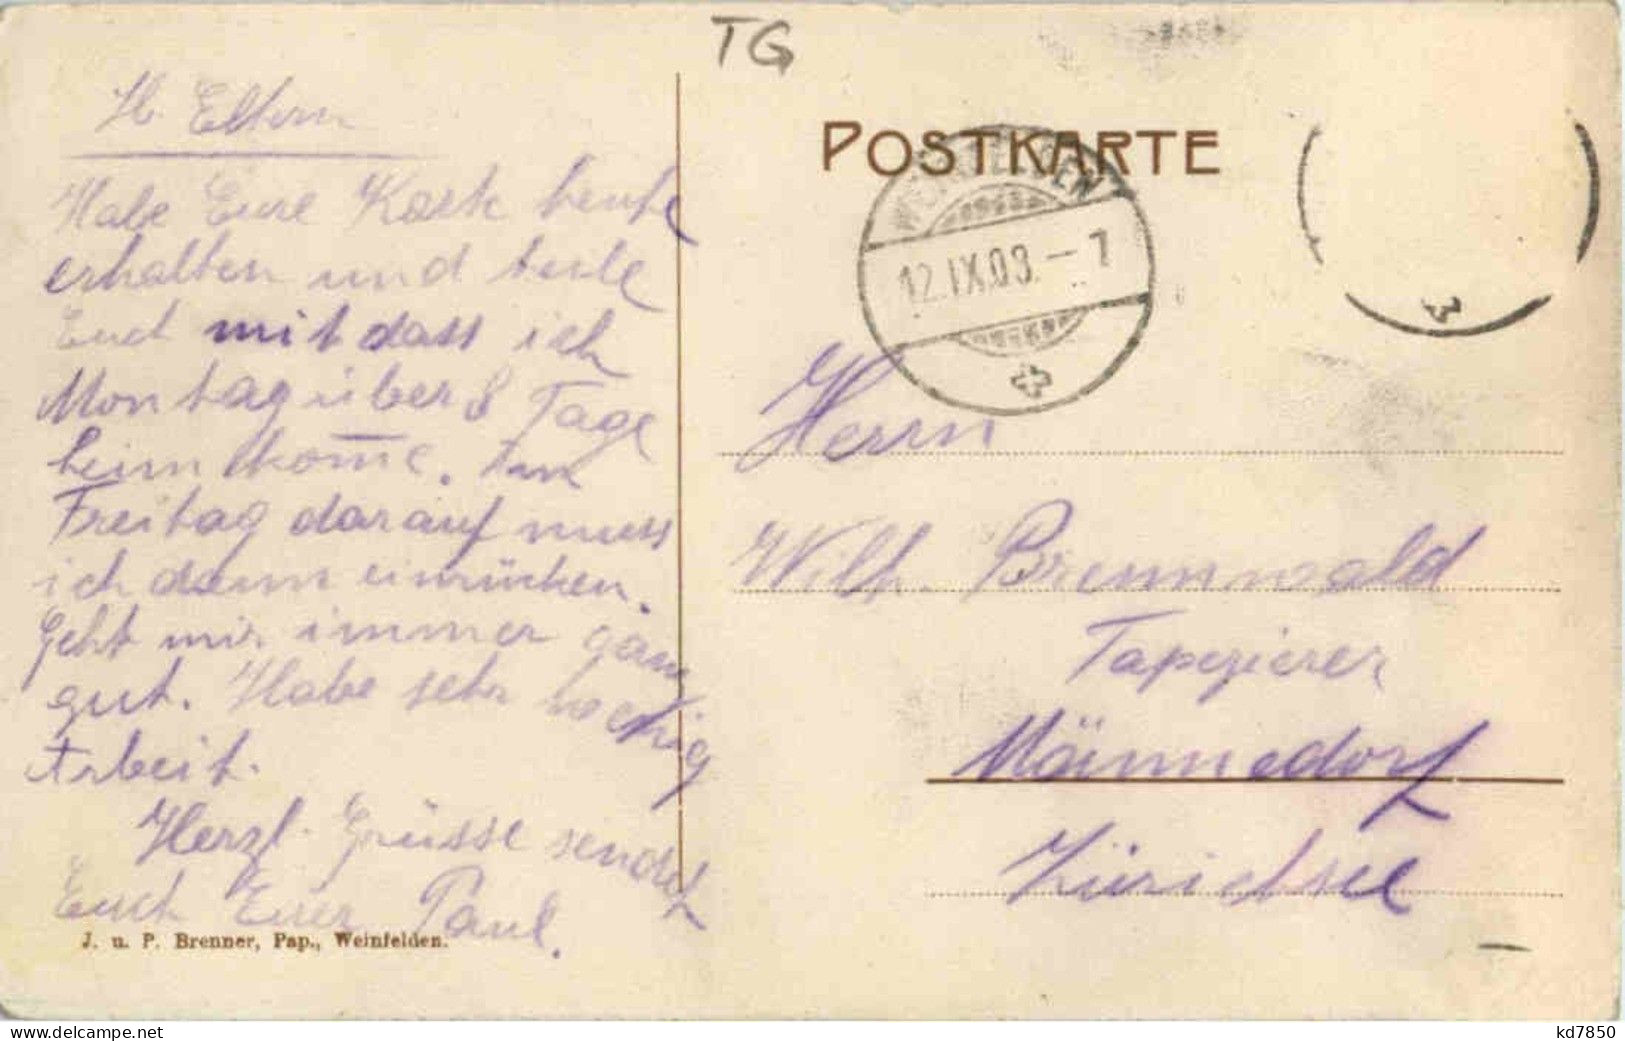 TG
POSTKARTE
WEINFELDEN
12.IX.09.-7
lb Eltern
Habe Eure Karte heute
erhalten und teile
Euch mit dass ich
Montag über 8 Tage
heimkom̅e. Am
Freitag darauf muss
ich dann einrücken.
Geht mir immer ganz
gut. Habe sehr
Arbeit.
Herzl. Grüsse sendet
Euch Euer Paul.
J. u. P. Brenner, Pap., Weinfelden.
Herrn
Wilh. Brennwald
Tapezierer
Männedorf
Zürichsee
kd7850